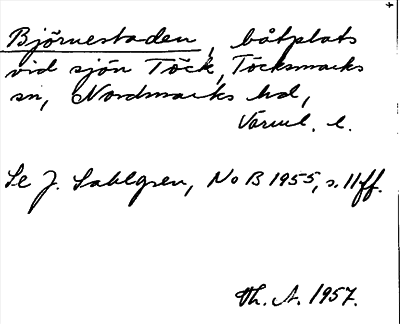 Björnestaden, båtplats
vid sjön Töck, Töcksmarks
sn, Nordmarks hd,
Värml. l.
Se J. Sahlgren, NoB 1955, s. 11ff.
Th. A. 1957.